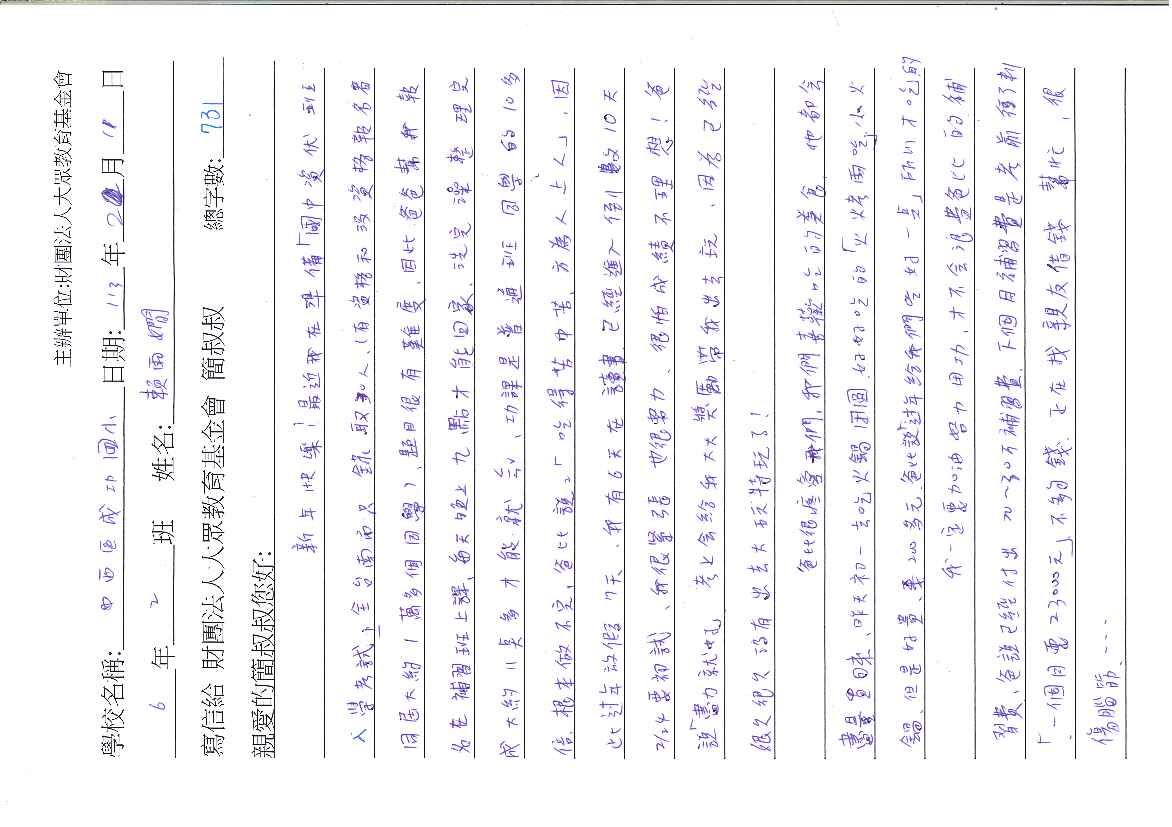 主辦單位:財團法人大眾教育基金會
學校名稱: 中西區成功國小 日期: 113 年 2 月 11 日
6 年 2 班 姓名: 賴雨嫺
寫信給 財團法人大眾教育基金會 簡叔叔 總字數: 731
親愛的簡叔叔您好:
新年快樂!最近我在準備「國中資優班
入學考試」,全台南只錄取30人,(有資格和沒資格報名者
因居大約1萬多個同學),題目很有難度,因此爸爸幫我報
名在補習班上課,每天晚上九點才能回家,洗完澡整理完
成大約11點多才能就寢,功課是普通班同學的10多
倍,根本做不完,爸比說:「吃得苦中苦,方為人上人」,因
此過年放假7天,我有6天在讀書,已經進入倒數10天
2/24要初試,我很緊張也很努力,很怕成績不理想!爸
說「盡力就好」考上會給我大大獎勵帶我出去玩,因為已經
很久很久沒有出去大玩特玩了!
爸比很疼我們,我們喜歡吃的美食,他都會
盡量買回來,昨天初一去吃火鍋圍圍,好好吃的「火烤兩吃」小火
鍋,但是好貴,要200多元,爸比說「過年給我們吃好一點」所以才吃的
我一定要加油努力用功,才不會浪費爸比的補
習費,爸說已經付出20~30萬補習費,下個月補習費是考前衝刺
「一個月要23000元」不夠錢,正在找親友借錢幫忙,很
傷腦筋....